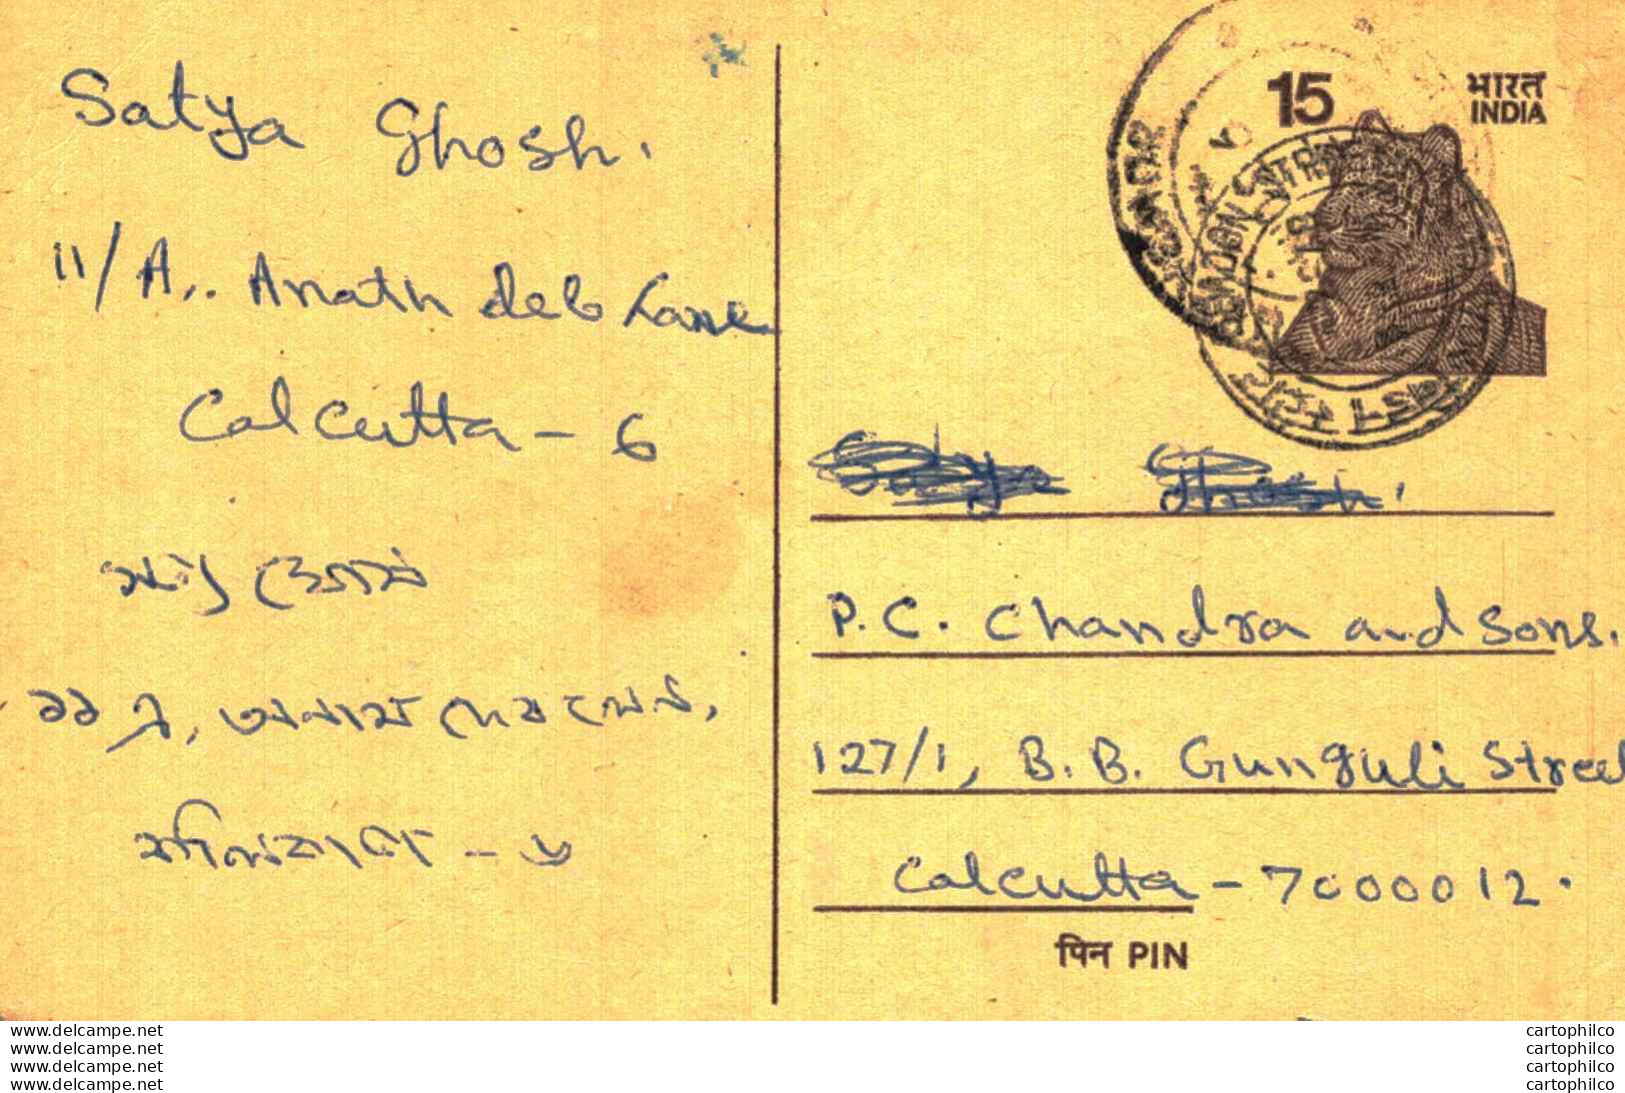 Satya Ghosh.
11/A,. Anath deb Lane
Calcutta - 6
সত্য ঘোষ
১১ এ, অনাথ দেব লেন,
কলিকাতা - ৬
15
भारत
INDIA
Satya Ghosh.
P. C. Chandra and Sons.
127/1, B. B. Gunguli Street
Calcutta - 7000012.
पिन PIN
www.delcampe.net
www.delcampe.net
www.delcampe.net
www.delcampe.net
cartophilco
cartophilco
cartophilco
cartophilco